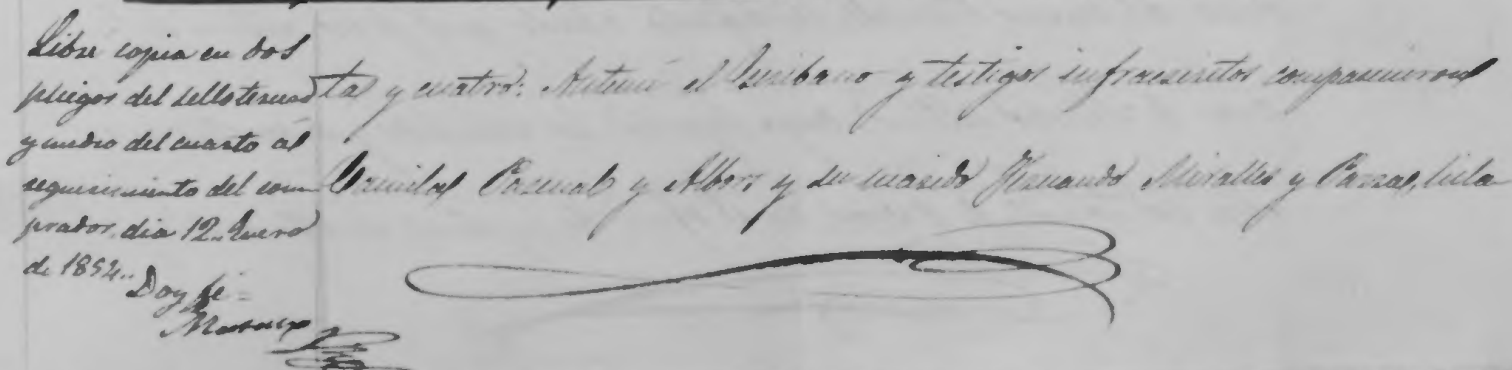 Libré copia en dos
pliegos del sello tercero
y medio del cuarto al
requerimiento del com
prador, dia 12 Enero
de 1854..
Doy fé =
ta y cuatro: Antemi el Escribano y testigos infraescritos comparecieron
Camila Pascual y Albors y su marido Fernando Miralles y